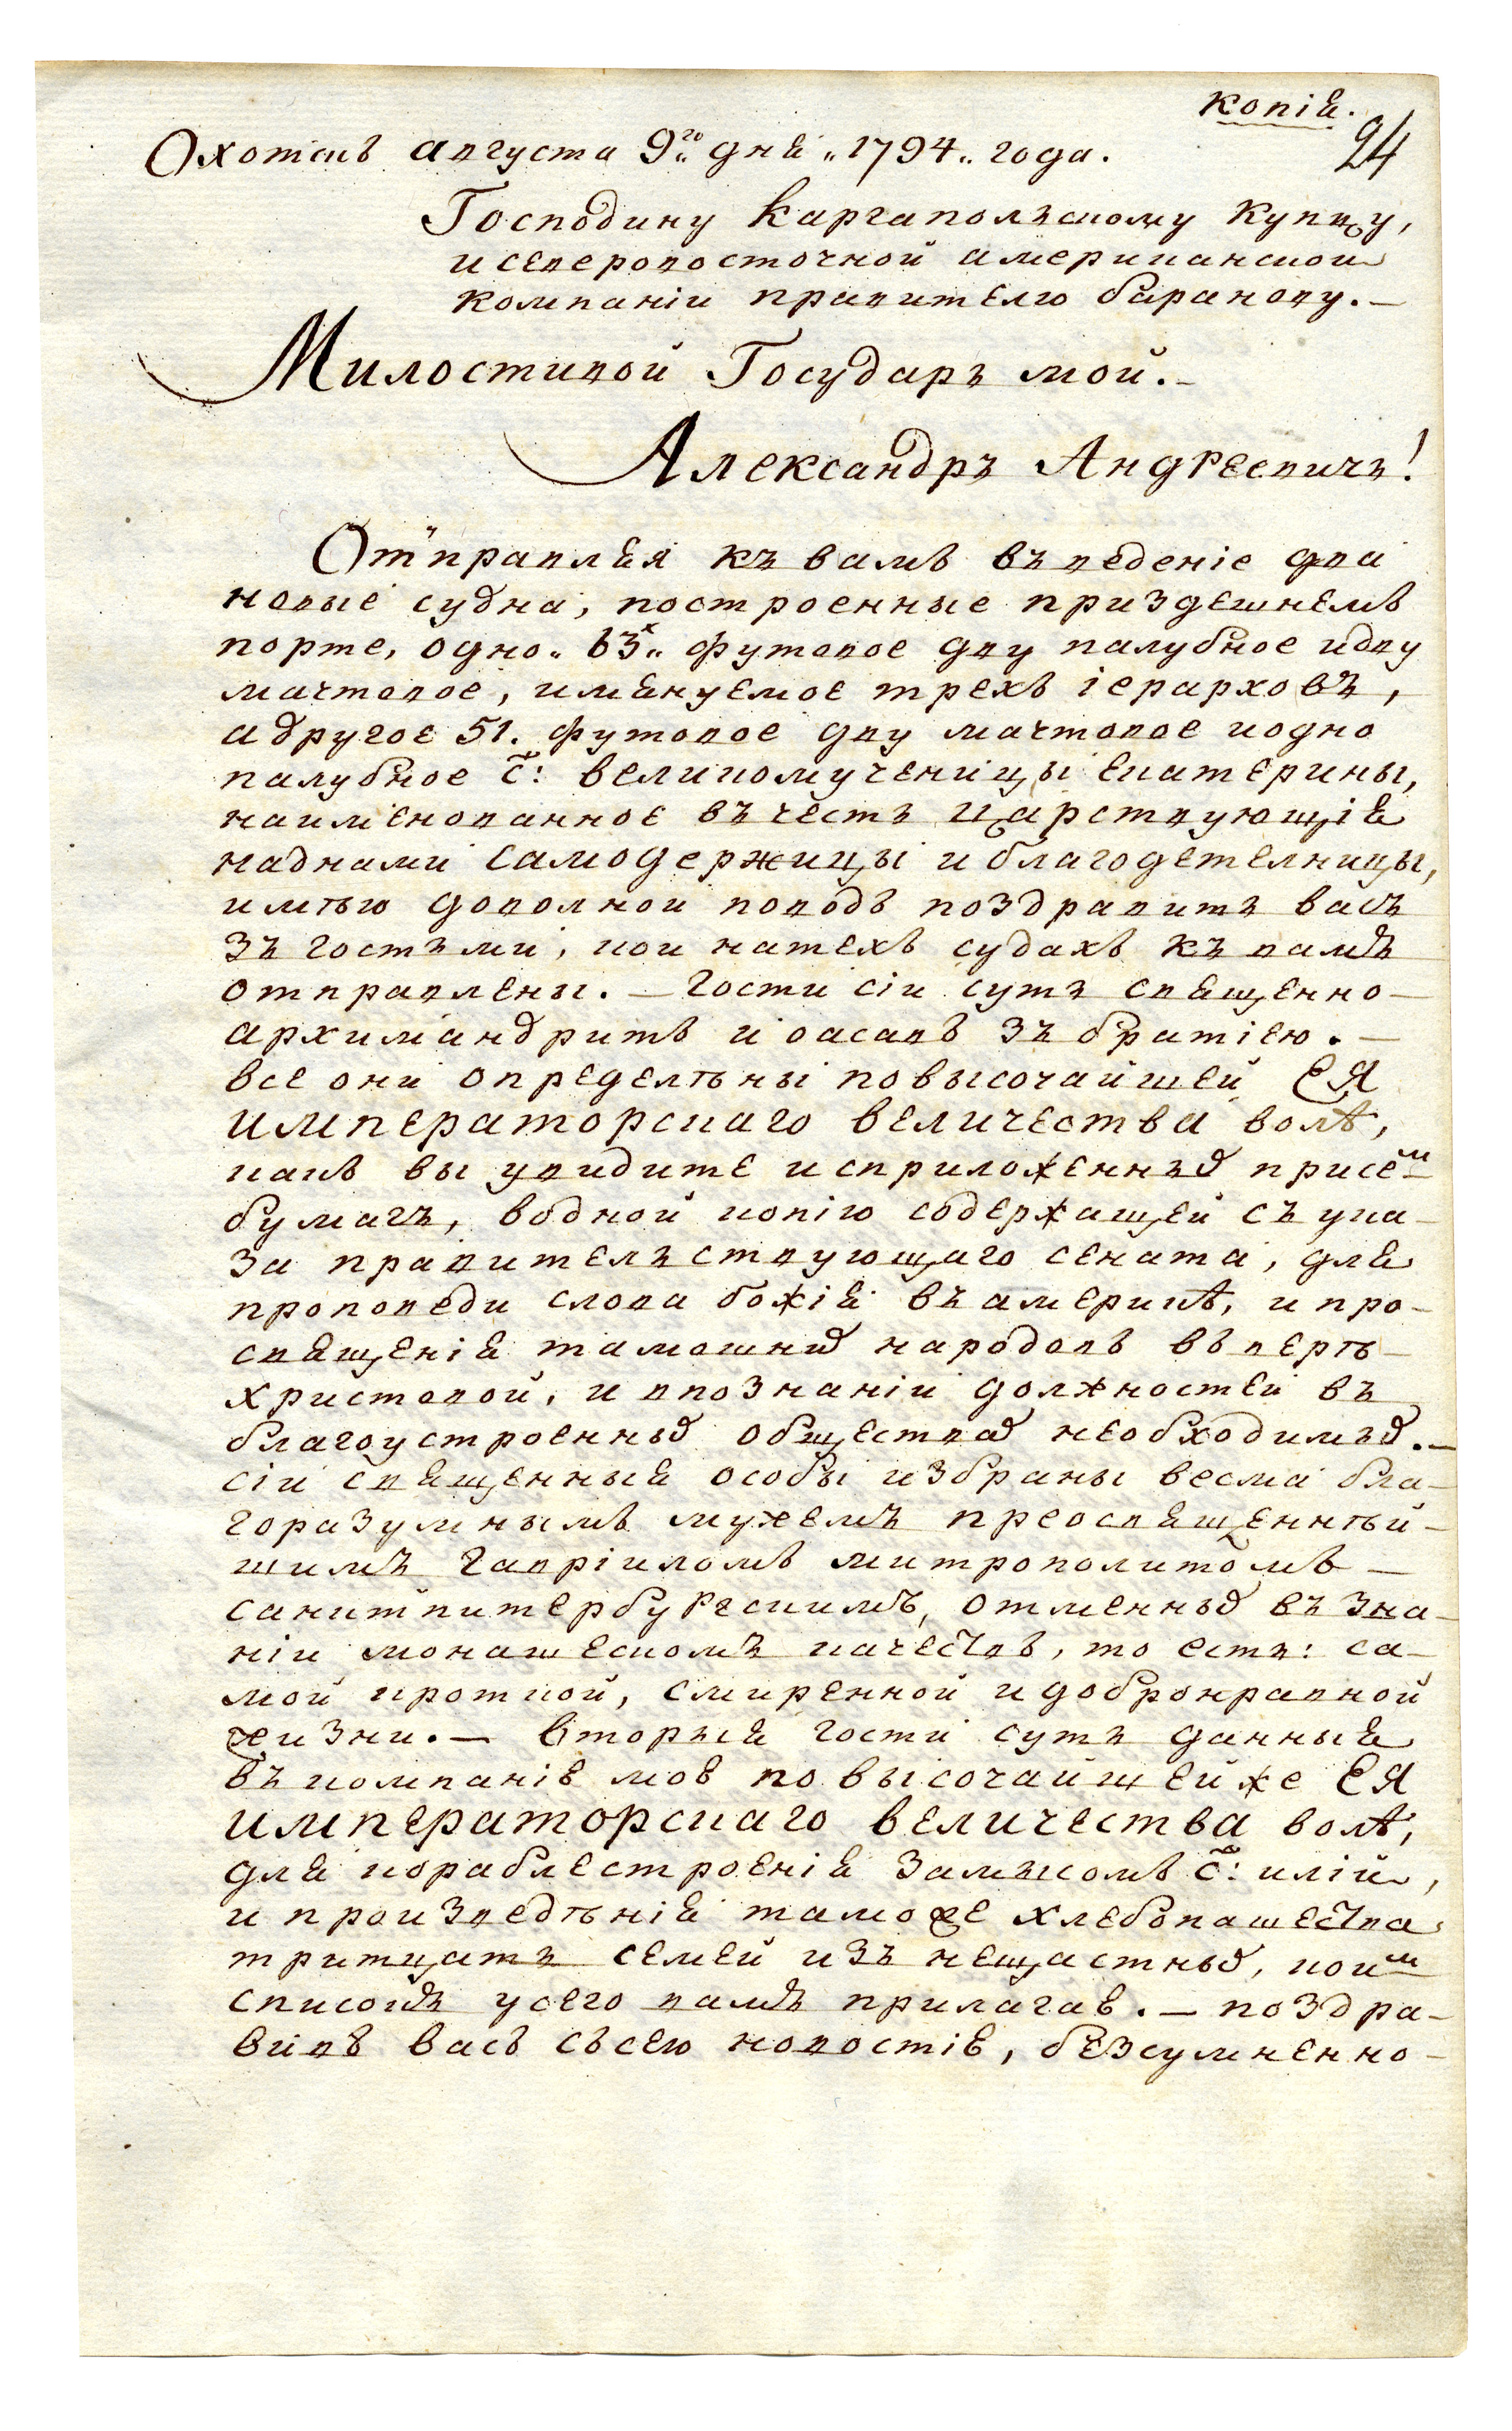 копія.
24
Охотскъ августа 9го дня 1794 года.
Господину каргаполъскому купцу,
и северовосточной американской
компаніи правителю баранову.—
Милостивой Государь мой.—
Александръ Андреевичь!
Отправляя къ вамъ въведеніе два
новые судна, построенные приздешнемъ
порте, одно 63х футовое двупалубное идву
мачтовое, имянуемое трехъ іерарховъ,
адругое 51. футовое двумачтовое иодно
палубное с: великомученицы екатерины,
наименованное въчесть царствующія
наднами самодержицы и благодетелницы,
имѣю довольной поводъ поздравить васъ
зъ гостьми, кои натехъ судахъ къ вамъ
отправлены.— Гости сіи суть священно-
архимандритъ иоасавъ зъ братіею.—
Все они определѣны повысочайшей ЕЯ
императорскаго величества волѣ,
какъ вы увидите исприложенныхъ присемъ
бумагъ, водной копію содержащей съ ука-
за правительствующаго сената, для
проповеди слова божія въ америкѣ, и про-
священія тамошних народовъ въ верѣ
христовой, и впознаніи должностей въ
благоустроенных обществах необходимых.—
Сіи священныя особы избраны весма бла-
горазумнымъ мужемъ преосвященнѣй-
шимъ гавріиломъ митрополитомъ—
санктпитербургскимъ, отменных въ зна-
ніи монашескомъ качествъ, то есть: са-
мой кроткой, смиренной и добронравной
жизни.— Вторыя гости суть данныя
въкомпанію мою по высочайшейже ЕЯ
императорскаго величества волѣ,
для кораблестроенія замысомъ с: иліи,
и произведѣнія таможе хлебопашества
тритцать семей изъ нещастных, коим
списокъ усего вамъ прилагаю.— поздра-
вивъ васъ съсею новостію, безсумненно-